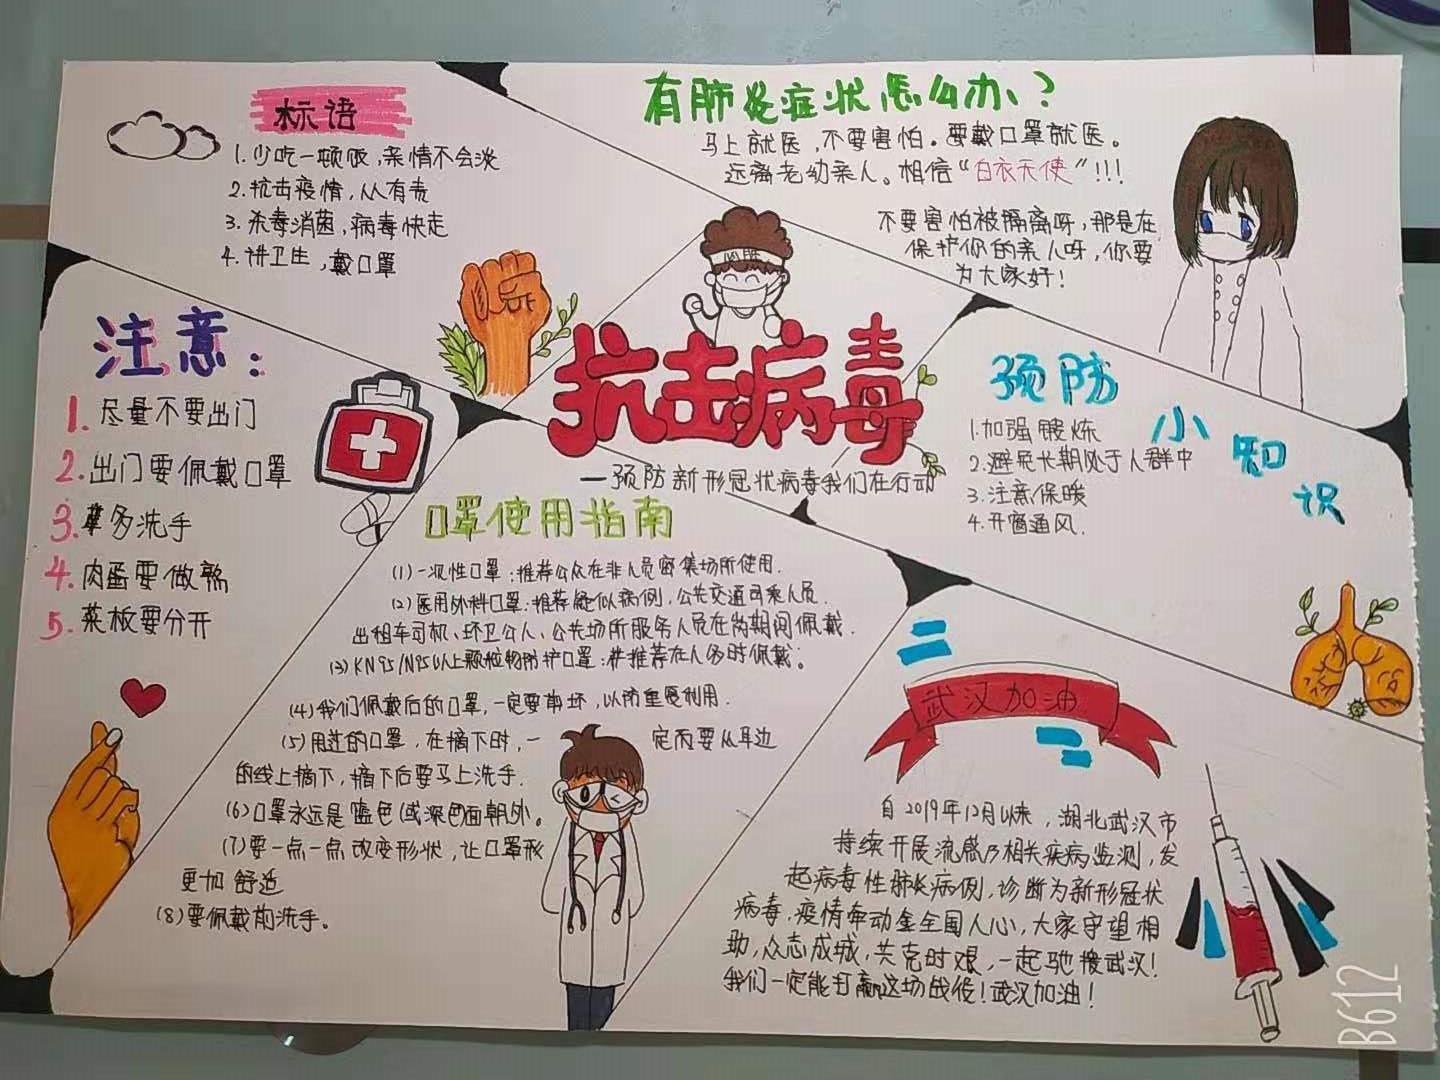 标语
1.少吃一顿饭,亲情不会淡
2.抗击疫情,人人有责
3.杀毒消菌,病毒快走
4.讲卫生,戴口罩
有肺炎症状怎么办、?
马上就医,不要害怕。要戴口罩就医。
远离老幼亲人。相信“白衣天使”!!!
不要害怕被隔离呀,那是在
保护你的亲人呀,你要
为大家好!
注意:
1.尽量不要出门
2.出门要佩戴口罩
3.多洗手
4.肉蛋要做熟
5.菜板要分开
抗击病毒
—预防新形冠状病毒我们在行动
预防小知识
1.加强锻炼
2.避免长期处于人群中
3.注意保暖
4.开窗通风.
口罩使用指南
(1)一次性口罩:推荐公众在非人员密集场所使用.
(2)医用外科口罩:推荐疑似病例,公共交通司乘人员.
出租车司机、环卫公人、公共场所服务人员在岗期间佩戴.
(3)KN95/N95以上颗粒物防护口罩:推荐在人多时佩戴。
(4)我们佩戴后的口罩,一定要剪坏,以防重复利用.
(5)用过的口罩,在摘下时,一定而要从耳边
的线上摘下,摘下后要马上洗手.
(6)口罩永远是蓝色(或深色面朝外。
(7)要一点一点改变形状,让口罩形
更加舒适
(8)要佩戴前洗手。
武汉加油
自2019年12月以来,湖北武汉市
持续开展流感及相关疾病监测,发
起病毒性肺炎病例,诊断为新形冠状
病毒,疫情牵动全全国人心,大家守望相
助,众志成城,共克时艰,一起驰援武汉!
我们一定能打赢这场战役!武汉加油!
B612